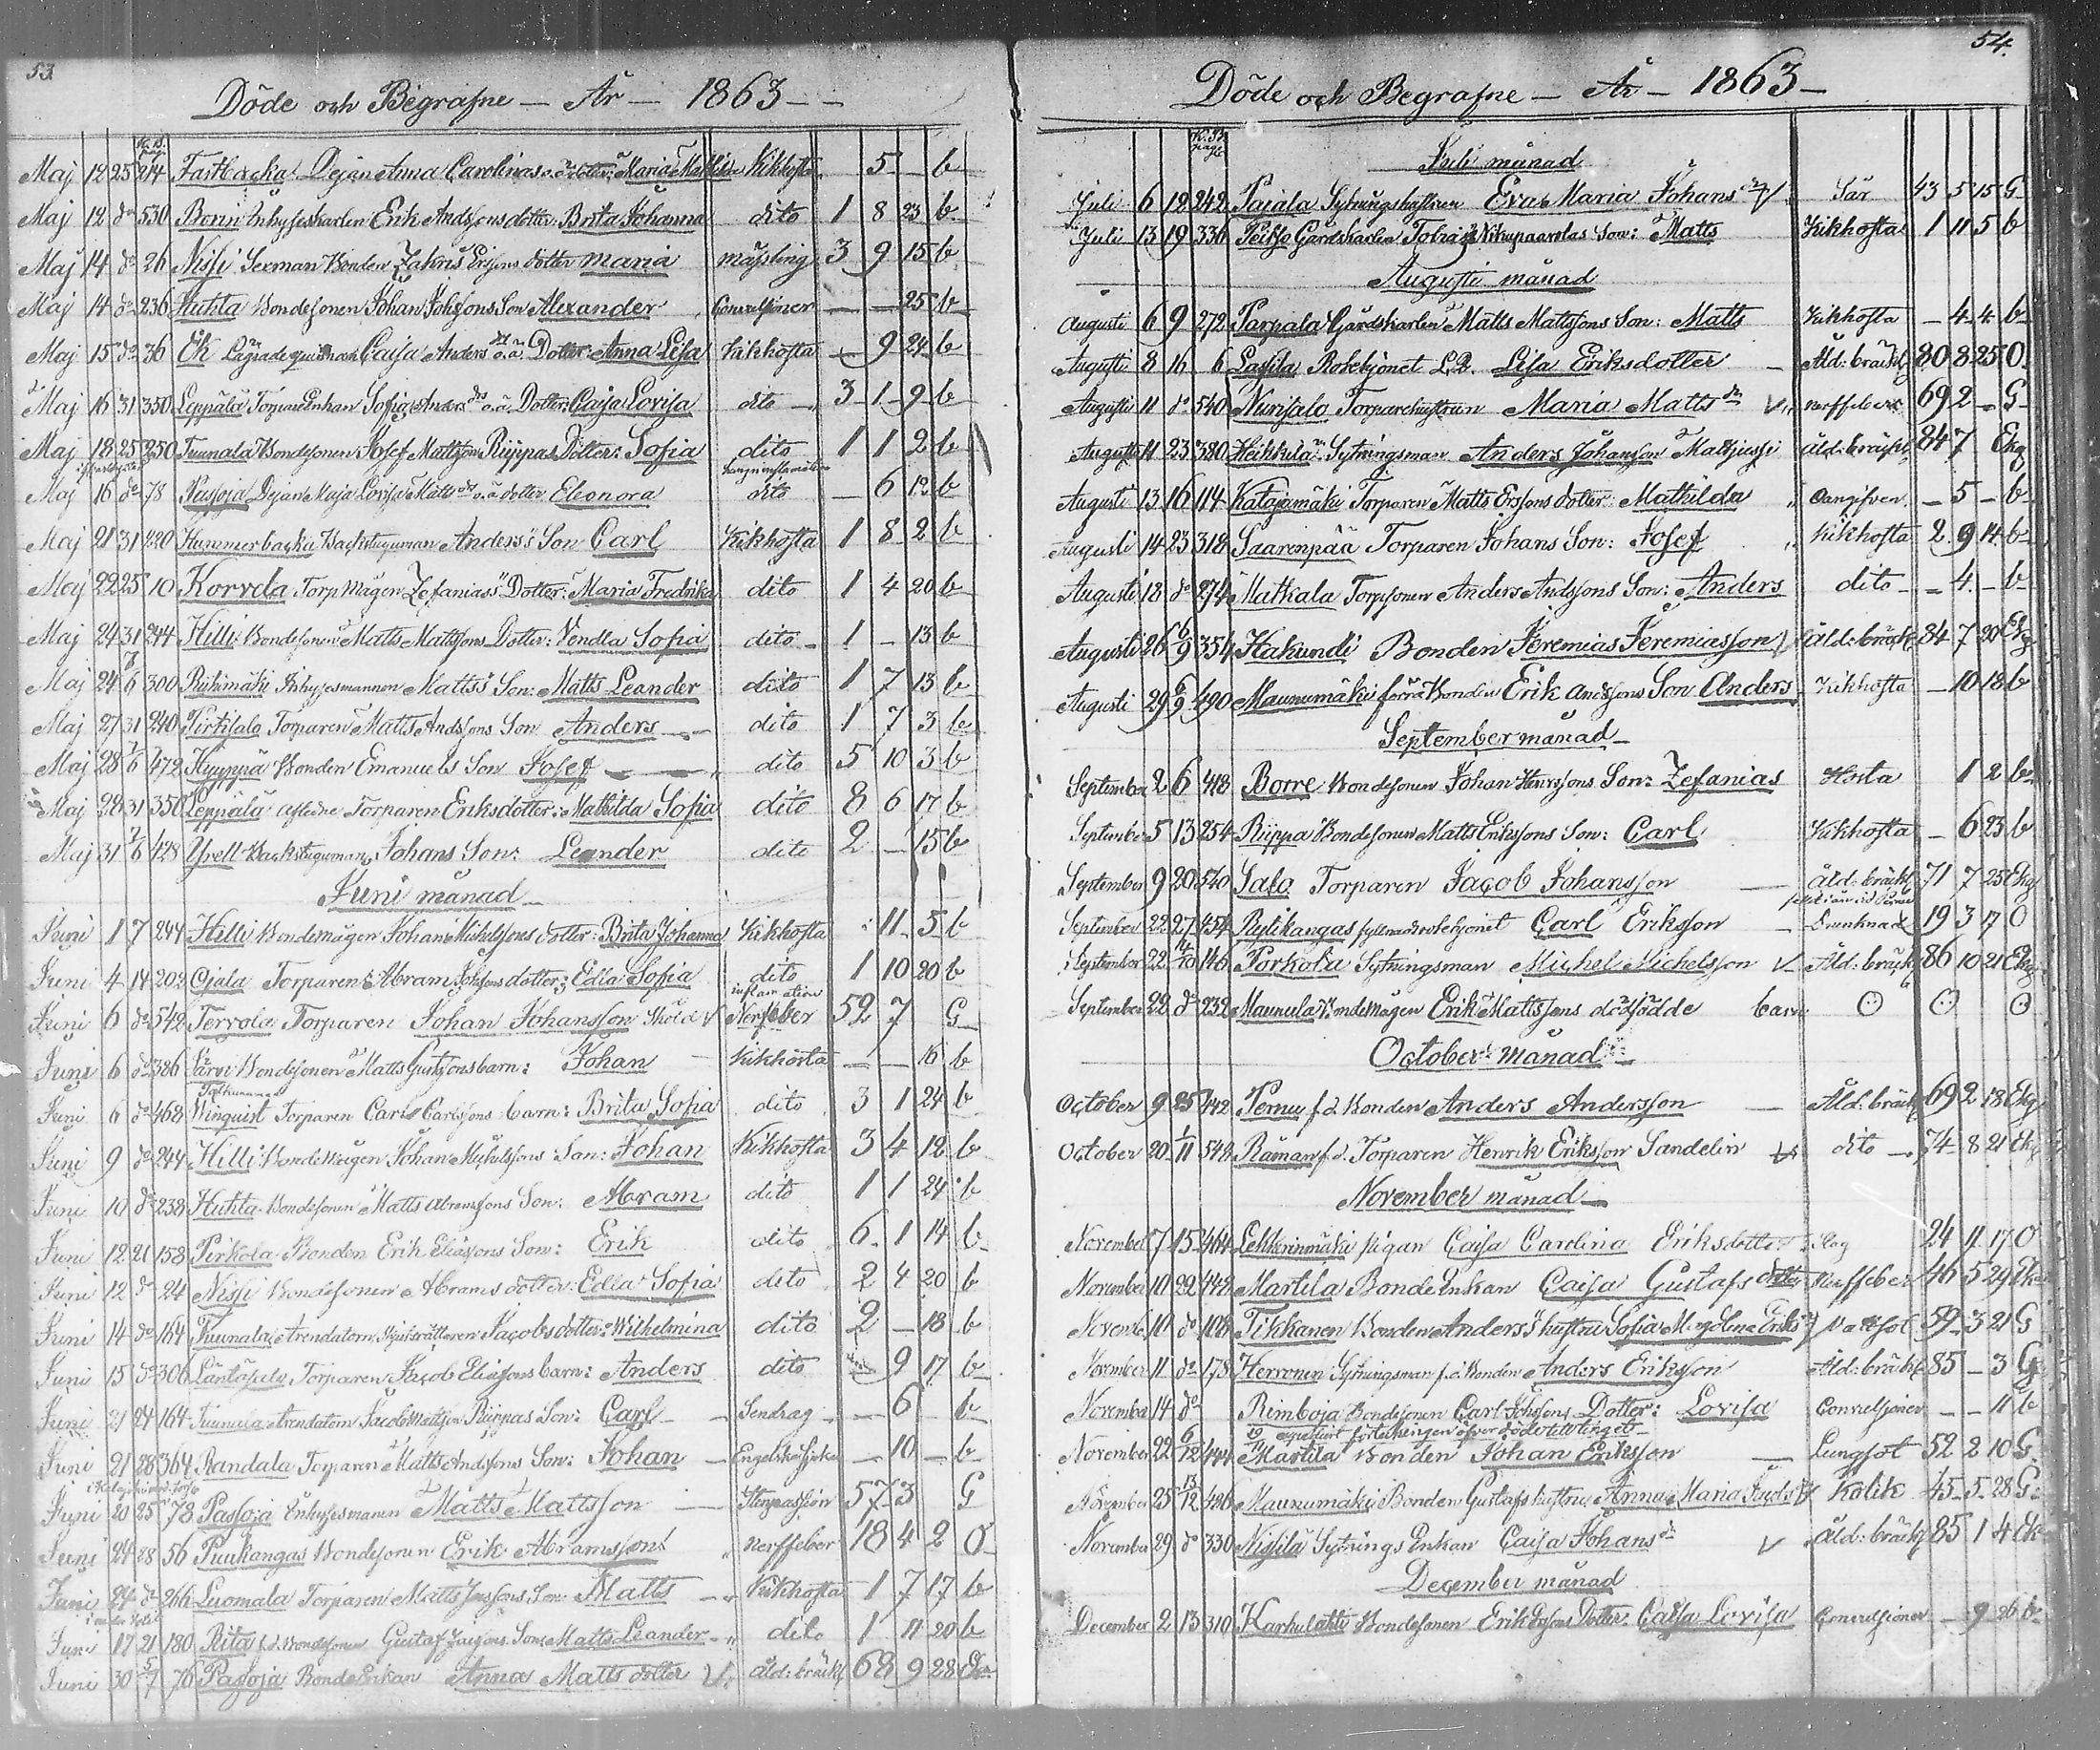 53
Döde och Begrafne — År — 1863 —
K. B. pag.
Maj 12 25 214 Fastbacka Dejan Anna Carolinas o.ä. dotter: Maria Mathilda Kikhosta 5 — b
Maj 12 do 530 Bonn Inhyseskarlen Erik Andssons dotter Brita Johanna dito 1 8 23 b
Maj 14 do 26 Nissi Sexman Bonden Zakris dotter Maria mässling 3 9 15 b
Maj 14 do 236 Huhta Bondesonen Johan Johssons Son Alexander Convulsioner — — 25 b
Maj 15 do 36 Ek Lägrade Caisa Anders dr o.ä. Dotter Anna Lisa Kikhosta — 9 24 b
Maj 16 31 350 Leppälä Torpare Enkan Sofia Anders drs o.ä. Dotter: Caisa Lovisa dito 3 1 9 b
Maj 18 25 250 Tuunala Bondesonen Josef Mattsson Riippas Dotter: Sofia dito 1 1 2 b
Maj 16 do 78 Passoja Dejan Maja Lovisa Matts drs o.ä. dotter Eleonora dito — 6 12 b
Maj 21 31 220 Hummerbacka Backstuguman Anders's Son Carl Kikhosta 1 8 2 b
Maj 22 25 10 Korvela Torp Mågen Zefanias's Dotter: Maria Fredrika dito 1 4 20 b
Maj 24 31 244 Hilli Bondesonen Matts Mattssons Dotter: Vendla Sofia dito 1 — 13 b
Maj 24 7/6 300 Riihimäki Inhysesmannen Matts's Son: Matts Leander dito 1 7 13 b
Maj 27 31 240 Torparen Matts Andssons Son Anders dito 1 7 3 b
Maj 28 7/6 472 Hyyppä Bonden Emanuels Son Josef dito 5 10 3 b
Maj 28 31 350 Leppälä afledne Torparen Eriks dotter: Mathilda Sofia dito 8 6 17 b
Maj 31 7/6 128 Backstuguman Johans Son: Leander dito 2 — 15 b
Juni månad
Juni 1 7 244 Hilli Bondemågen Johan Michelssons dotter: Brita Johanna Kikhosta 11 5 b
Juni 4 14 202 Ojala Torparen Abram Johssons dotter: Edla Sofia dito 1 10 20 b
inflamation
Juni 6 do 542 Tervola Torparen Johan Johansson Sköld Nerfeber 52 7 G
Juni 6 do 386 Järvi Bondesonen Matts Gustssons barn: Johan Kikhosta — — 16 b
Juni 6 do 468 Winquist Torparen Carl Carlssons barn: Brita Sofia dito 3 1 24 b
Juni 9 do 244 Hilli Bondemågen Johan Michelssons Son: Johan Kikhosta 3 4 12 b
Juni 10 do 238 Huhta Bondesonen Matts Abramssons Son: Abram dito 1 1 24 b
Juni 12 21 158 Pirkola Bonden Erik Eliassons Son: Erik dito 6 1 14 b
Juni 12 do 24 Nissi Bondesonen Abrams dotter: Edla Sofia dito 2 4 20 b
Juni 14 do 164 Tuunala Arrendatorn Jacobs dotter: Wilhelmina dito 2 — 18 b
Juni 15 do 306 Torparen Jacob Eliassons barn: Anders dito 9 17 b
Juni 21 24 164 Tuunala Arrendatorn Jacob Mattsson Riippas Son: Carl Sendrag — 6 b
Juni 21 28 364 Randala Torparen Matts Andssons Son: Johan Engelska Sjukan — 10 — b
Juni 20 25 78 Passoja Inhysesmannen Matts Mattsson 57 3 G
Juni 24 28 56 Puukangas Bondesonen Erik Abramsson nerffeber 18 4 2 O
Juni 24 do 266 Luomala Torparen Matts Son: Matts Kikhosta 1 7 17 b
Juni 17 21 180 Rita f.d. Bondesonen Gustaf Son: Matts Leander dito 1 11 20 b
Juni 30 5/7 76 Passoja Bonde Enkan Anna Matts dotter åld: bräckl 68 9 28
54
Döde och Begrafne — År — 1863 —
K. B. pag.
Juli månad
Juli 6 12 242 Pajala Sytningshustrun Eva Maria Johans dr Sår 43 5 15 G
Juli 13 19 336 Gårdskarlen Tobias Son: Matts Kikhosta 1 11 5 b
Augusti månad
Augusti 6 9 272 Parpala Gårdskarlen Matts Mattssons Son: Matts Kikhosta — 4 4 b
Augusti 8 16 6 Lassila Rotehjonet Lisa Eriksdotter Åld: bräckl 80 8 25 O
Augusti 11 do 540 Nurisalo Torparehustrun Maria Matts dr nerffeber 69 2 — G
Augusti 11 23 380 Heikkilä Sytningsman Anders Johansson åld: bräckl 84 7 Ekg
Augusti 13 16 114 Katajamäki Torparen Matts Erssons dotter Mathilda Oangifven — 5 — b
Augusti 14 23 318 Saarenpää Torparen Johans Son: Josef Kikhosta 2 9 14 b
Augusti 18 do 274 Matkala Torpsonen Anders Andssons Son: Anders dito — 4 — b
Augusti 26 6/9 354 Hakundi Bonden Jeremias Jeremiasson åld: bräckl 84 7 20 Ekg
Augusti 29 6/9 490 Maunumäki förra Bonden Erik Andssons Son Anders Kikhosta — 10 18 b
September månad
September 2 6 418 Borre Bondesonen Johan Henrssons Son: Zefanias Hosta 1 2 b
September 5 13 254 Riippa Bondesonen Matts Erikssons Son: Carl Kikhosta — 6 23 b
September 9 20 540 Salo Torparen Jacob Johansson åld: bräckl 71 7 25 Ekg
September 22 27 454 Rytikangas Carl Eriksson Drunknad 19 3 17 O
September 22 4/10 146 Porkola Sytningsman Michel Michelsson Åld: bräckl 86 10 21 Ekg
September 22 do 232 Maunula Bondemågen Erik Mattssons dödfödde barn
October månad
October 9 25 442 Pernu f.d. Bonden Anders Andersson Åld: bräckl 69 2 18 Ekg
October 20 1/11 548 Råman f.d. Torparen Henrik Eriksson Sandelin dito 74 8 21 Ekg
November månad
November 7 15 464 Lehterinmäki pigan Caisa Carolina Eriksdotter Slag 24 11 17 O
November 10 22 448 Martila Bonde Enkan Caisa Gustafs dotter Nerffeber 46 5 29
November 10 do 108 Tikkanen Bonden Anders's hustru Sofia Magdlena Eriks dr Vattsot 59 3 21 G
November 11 do 178 Herronen Sytningsman f.d. Bonden Anders Eriksson Åld: bräckl 85 — 3 G
November 14 do Rimboja Bondesonen Carl Johssons Dotter: Lovisa Convulsioner — — 11 b
November 22 6/12 444 Martila Bonden Johan Eriksson Lungsot 52 2 10 G
November 25 13/12 486 Maunumäki Bonden Gustafs hustru Anna Maria Kolik 45 5 28 G
November 29 do 330 Nissilä Sytnings Enkan Caisa Johans dr åld: bräckl 85 1 4
December månad
December 2 13 310 Karhulahti Bondesonen Erik Erssons Dotter Caisa Lovisa Convulsioner — 9 26 b